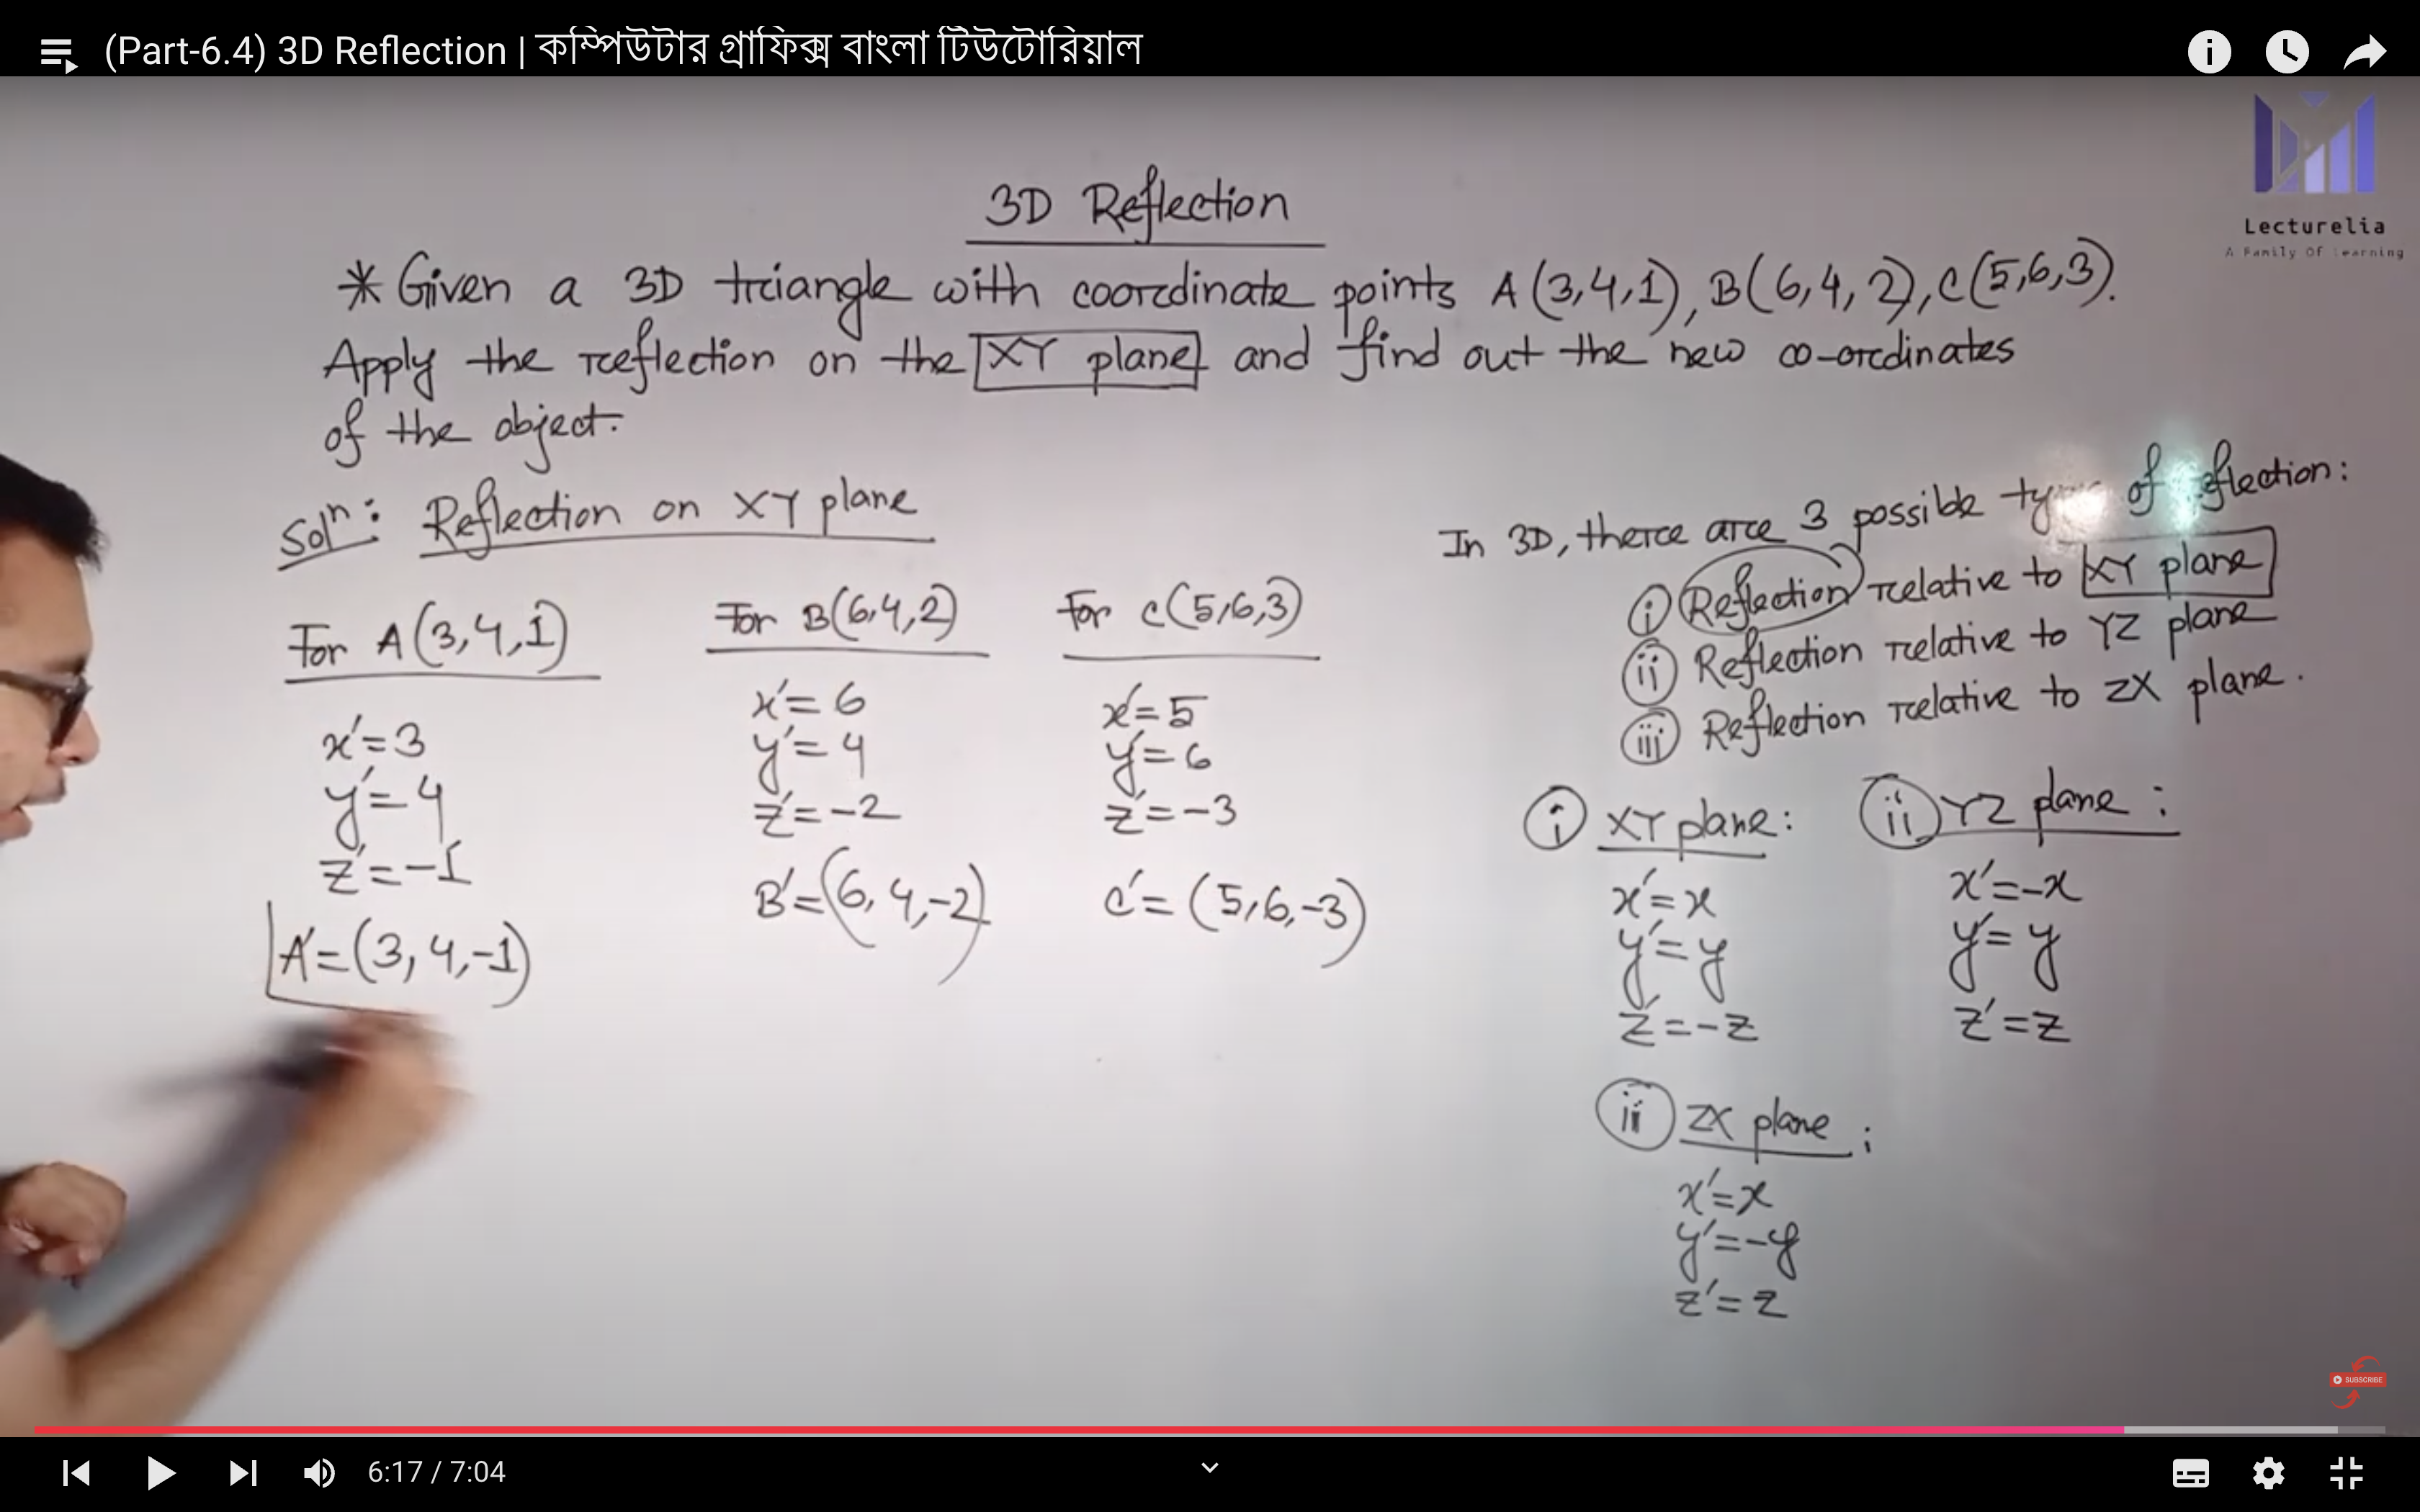 (Part-6.4) 3D Reflection | কম্পিউটার গ্রাফিক্স বাংলা টিউটোরিয়াল
Lecturelia
A Family Of Learning
3D Reflection
* Given a 3D triangle with coordinate points A(3,4,1), B(6,4,2), C(5,6,3).
Apply the reflection on the XY plane and find out the new co-ordinates
of the object.
Solⁿ: Reflection on XY plane
For A(3,4,1)
x'=3
y'=4
z'=-1
A'=(3,4,-1)
For B(6,4,2)
x'=6
y'=4
z'=-2
B'=(6,4,-2)
For C(5,6,3)
x'=5
y'=6
z'=-3
C'=(5,6,-3)
In 3D, there are 3 possible of reflection:
i Reflection relative to XY plane
ii Reflection relative to YZ plane
iii Reflection relative to ZX plane.
i XY plane:
x'=x
y'=y
z'=-z
ii YZ plane:
x'=-x
y'=y
z'=z
ii ZX plane:
x'=x
y'=-y
z'=z
SUBSCRIBE
6:17 / 7:04